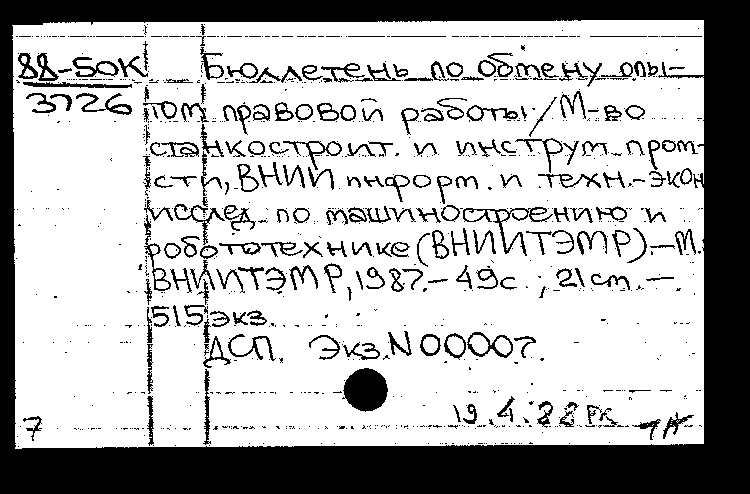 88-50К Бюллетень по обмену опы-
3726 том правовой работы / М-во
станкостроит. и инструм. пром-
сти, ВНИИ информ. и техн.-экон.
исслед. по машиностроению и
робототехнике (ВНИИТЭМР).-М.:
ВНИИТЭМР, 1987.- 49с ; 21 cm. -
515 экз.
ДСП. Экз. N 00007.
19.4.88 РК
7